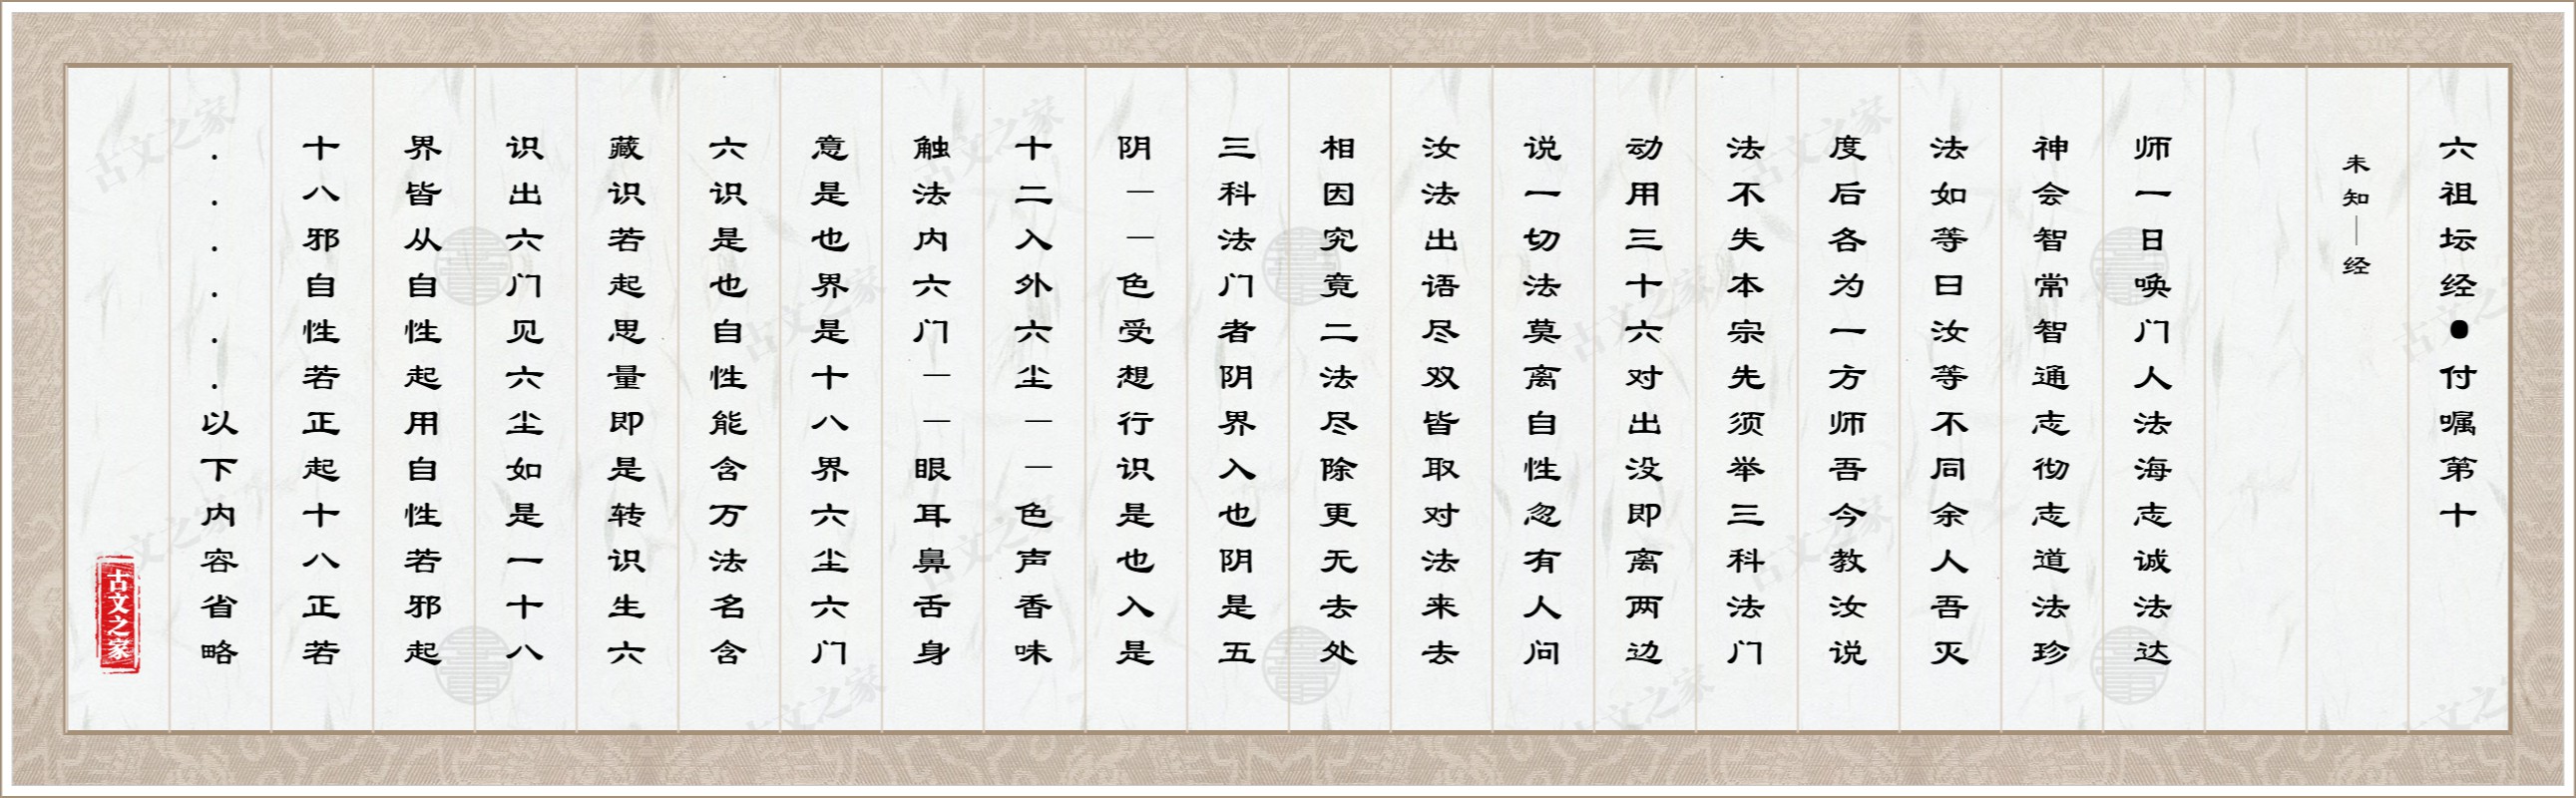 六祖坛经●付嘱第十
未知—经
师一日唤门人法海志诚法达
神会智常智通志彻志道法珍
法如等曰汝等不同余人吾灭
度后各为一方师吾今教汝说
法不失本宗先须举三科法门
动用三十六对出没即离两边
说一切法莫离自性忽有人问
汝法出语尽双皆取对法来去
相因究竟二法尽除更无去处
三科法门者阴界入也阴是五
阴——色受想行识是也入是
十二入外六尘——色声香味
触法内六门——眼耳鼻舌身
意是也界是十八界六尘六门
六识是也自性能含万法名含
藏识若起思量即是转识生六
识出六门见六尘如是一十八
界皆从自性起用自性若邪起
十八邪自性若正起十八正若
......以下内容省略
古文之家